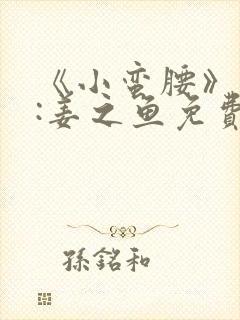 《小蛮腰》
:姜之鱼免費
孫銘和